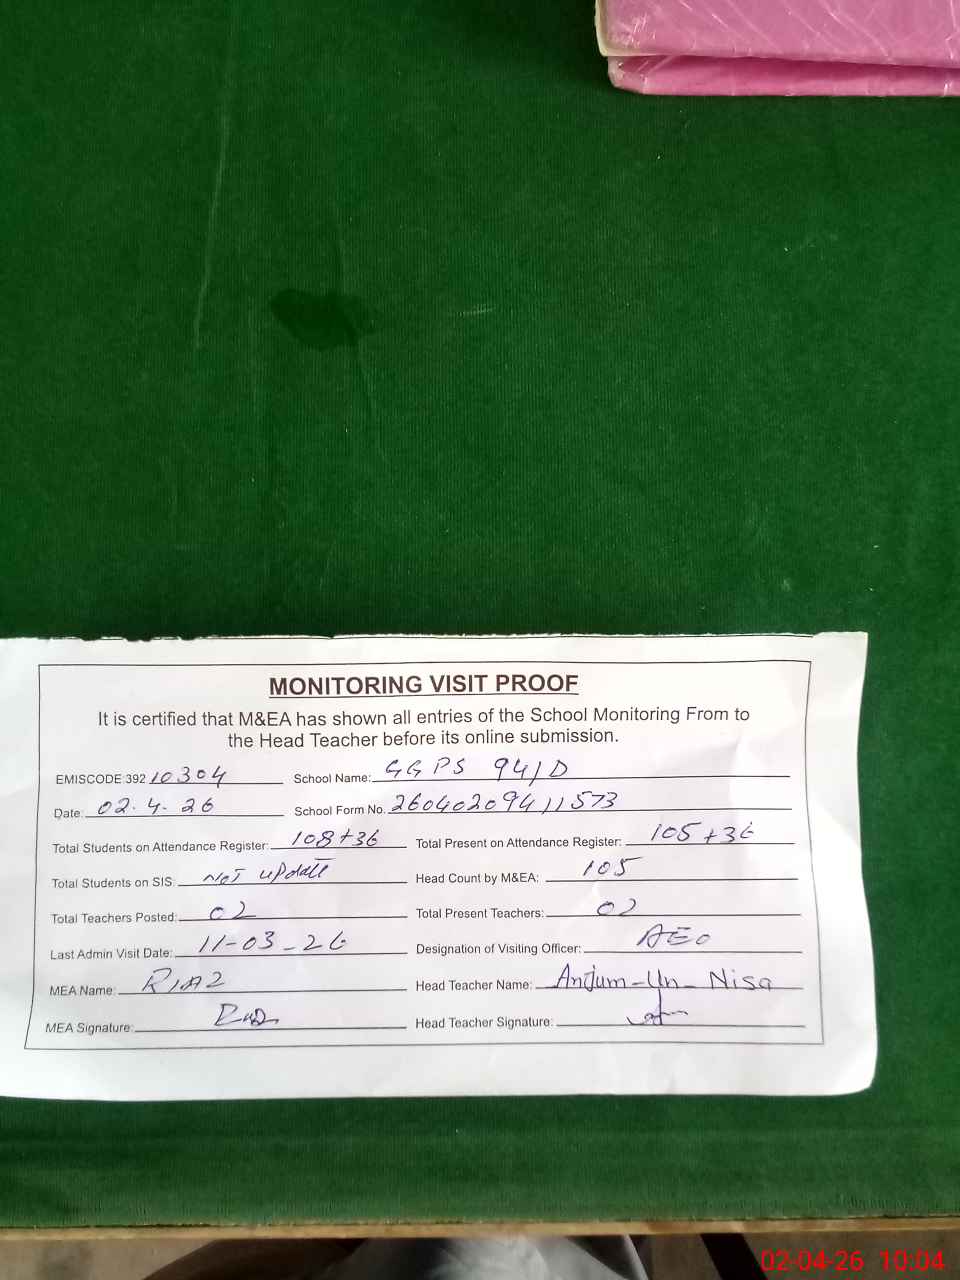 MONITORING VISIT PROOF
It is certified that M&EA has shown all entries of the School Monitoring From to
the Head Teacher before its online submission.
EMISCODE:392 10304 School Name: GGPS 94/D
Date: 02.4.26 School Form No. 26040209411573
Total Students on Attendance Register: 108+36 Total Present on Attendance Register: 105+36
Total Students on SIS: Not update Head Count by M&EA: 105
Total Teachers Posted: 02 Total Present Teachers: 02
Last Admin Visit Date: 11-03-26 Designation of Visiting Officer: AEO
MEA Name: RIAZ Head Teacher Name: Anjum-Un-Nisa
MEA Signature: Head Teacher Signature:
02-04-26 10:04